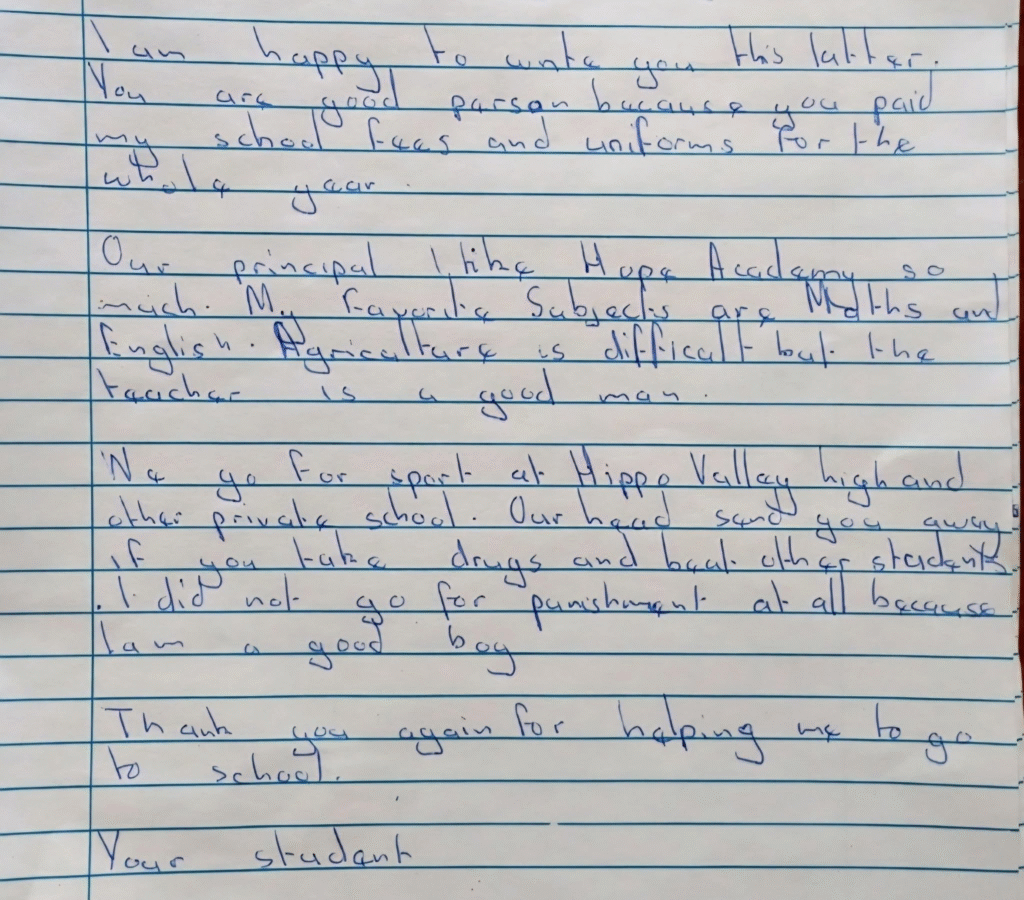 I am happy to write you this latter.
You are good parson because you paid
my school fees and uniforms for the
whole year.
Our principal I like Hope Academy so
much. My favorite Subjects are Maths and
English. Agriculture is difficult but the
teacher is a good man.
We go for sport at Hippo Valley high and
other private school. Our head send you away
if you take drugs and beat other students
. I did not go for punishment at all because
I am a good boy
Thank you again for helping me to go
to school.
Your student